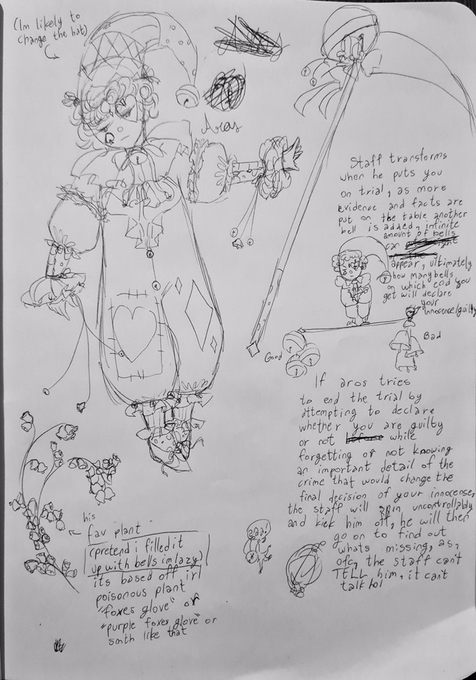 (Im likely to
change the hat)
Aros
Staff transforms
when he puts you
on trial, as more
evidence and facts are
put on the table another
bell is added, infinite
amount of bells
can
appear, ultimately
how many bells
on which end you
get will declare
your
innocense/guilty
Good
Bad
If aros tries
to end the trial by
attempting to declare
whether you are guilty
or not while
forgetting or not knowing
an important detail of the
crime that would change the
final decision of your innocense,
the staff will spin uncontrollably
and kick him off, he will then
go on to find out
whats missing, as,
ofc, the staff cant
TELL him, it cant
talk lol
his
fav plant
(pretend i filled it
up with bells im lazy)
its based off irl
poisonous plant
"foxes glove" or
"purple foxes glove" or
smth like that